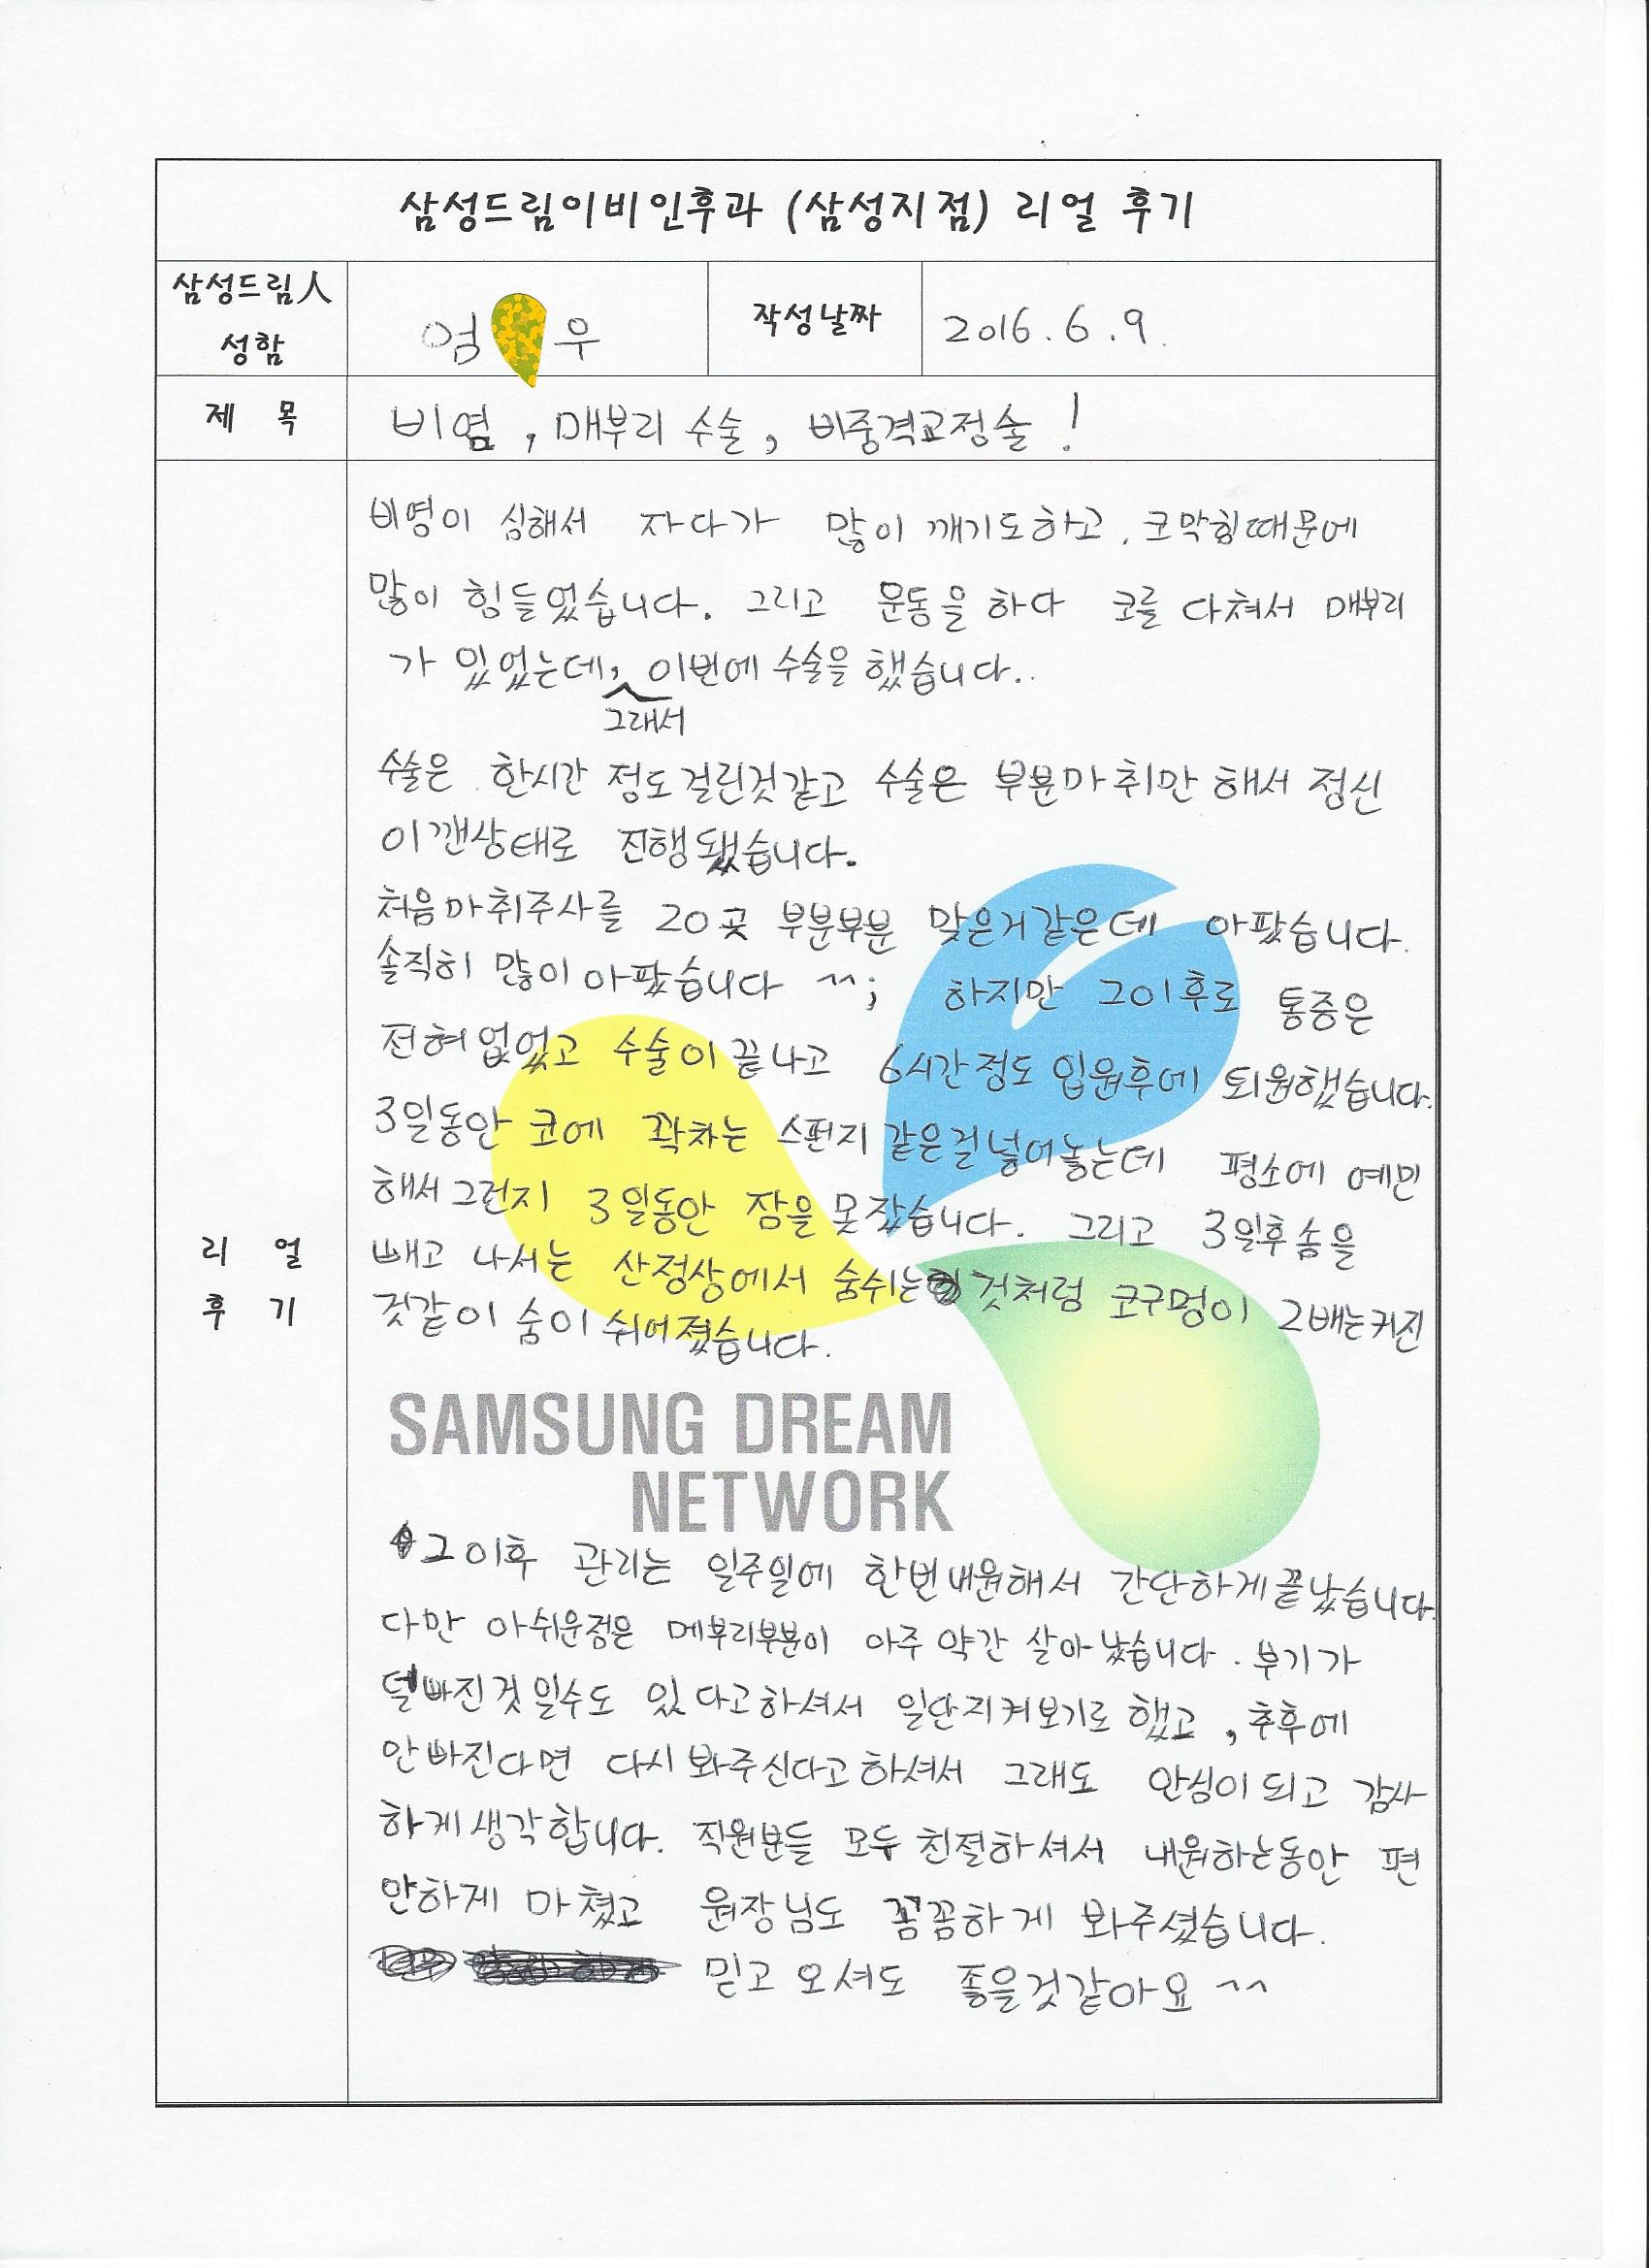 삼성드림이비인후과 (삼성지점) 리얼 후기
삼성드림人
성함
엄 우
작성날짜
2016.6.9.
제 목
비염, 매부리 수술, 비중격교정술!
리 얼
후 기
비염이 심해서 자다가 많이 깨기도하고, 코막힘때문에
많이 힘들었습니다. 그리고 운동을 하다 코를 다쳐서 매부리
가 있었는데, 이번에 수술을 했습니다..
그래서
수술은 한시간 정도 걸린것같고 수술은 부분마취만 해서 정신
이 깬상태로 진행됐습니다.
처음마취주사를 20곳 부분부분 맞은거같은데 아팠습니다.
솔직히 많이 아팠습니다 ^^; 하지만 그이후로 통증은
전혀 없었고 수술이 끝나고 6시간정도 입원후에 퇴원했습니다.
3일동안 코에 꽉차는 스펀지 같은걸 넣어놓는데 평소에 예민
해서 그런지 3일동안 잠을 못잤습니다. 그리고 3일후 솜을
빼고 나서는 산정상에서 숨쉬는 것처럼 코구멍이 2배는커진
것같이 숨이 쉬어졌습니다.
SAMSUNG DREAM
NETWORK
그이후 관리는 일주일에 한번 내원해서 간단하게끝났습니다.
다만 아쉬운점은 메부리부분이 아주 약간 살아났습니다. 부기가
덜빠진것일수도 있다고하셔서 일단지켜보기로 했고, 추후에
안빠진다면 다시 봐주신다고 하셔서 그래도 안심이 되고 감사
하게 생각합니다. 직원분들 모두 친절하셔서 내원하는동안 편
안하게 마쳤고 원장님도 꼼꼼하게 봐주셨습니다.
믿고 오셔도 좋을것같아요 ^^